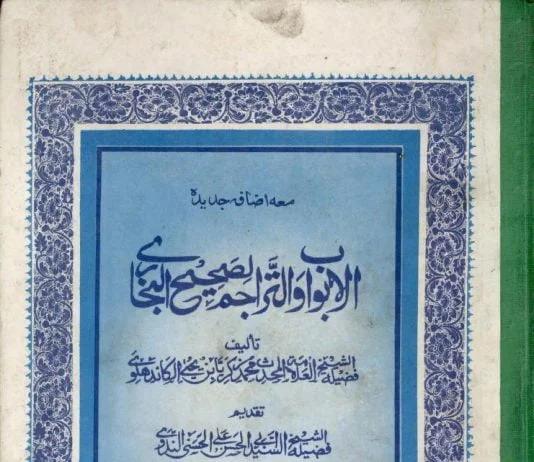 معه اضافه جديده
الابواب والتراجم لصحيح البخاري
تأليف
فضيلة الشيخ العلامة المحدث محمد زكريا بن يحيى الكاندهلوي
تقديم
فضيلة الشيخ السيد ابي الحسن علي الحسني الندوي